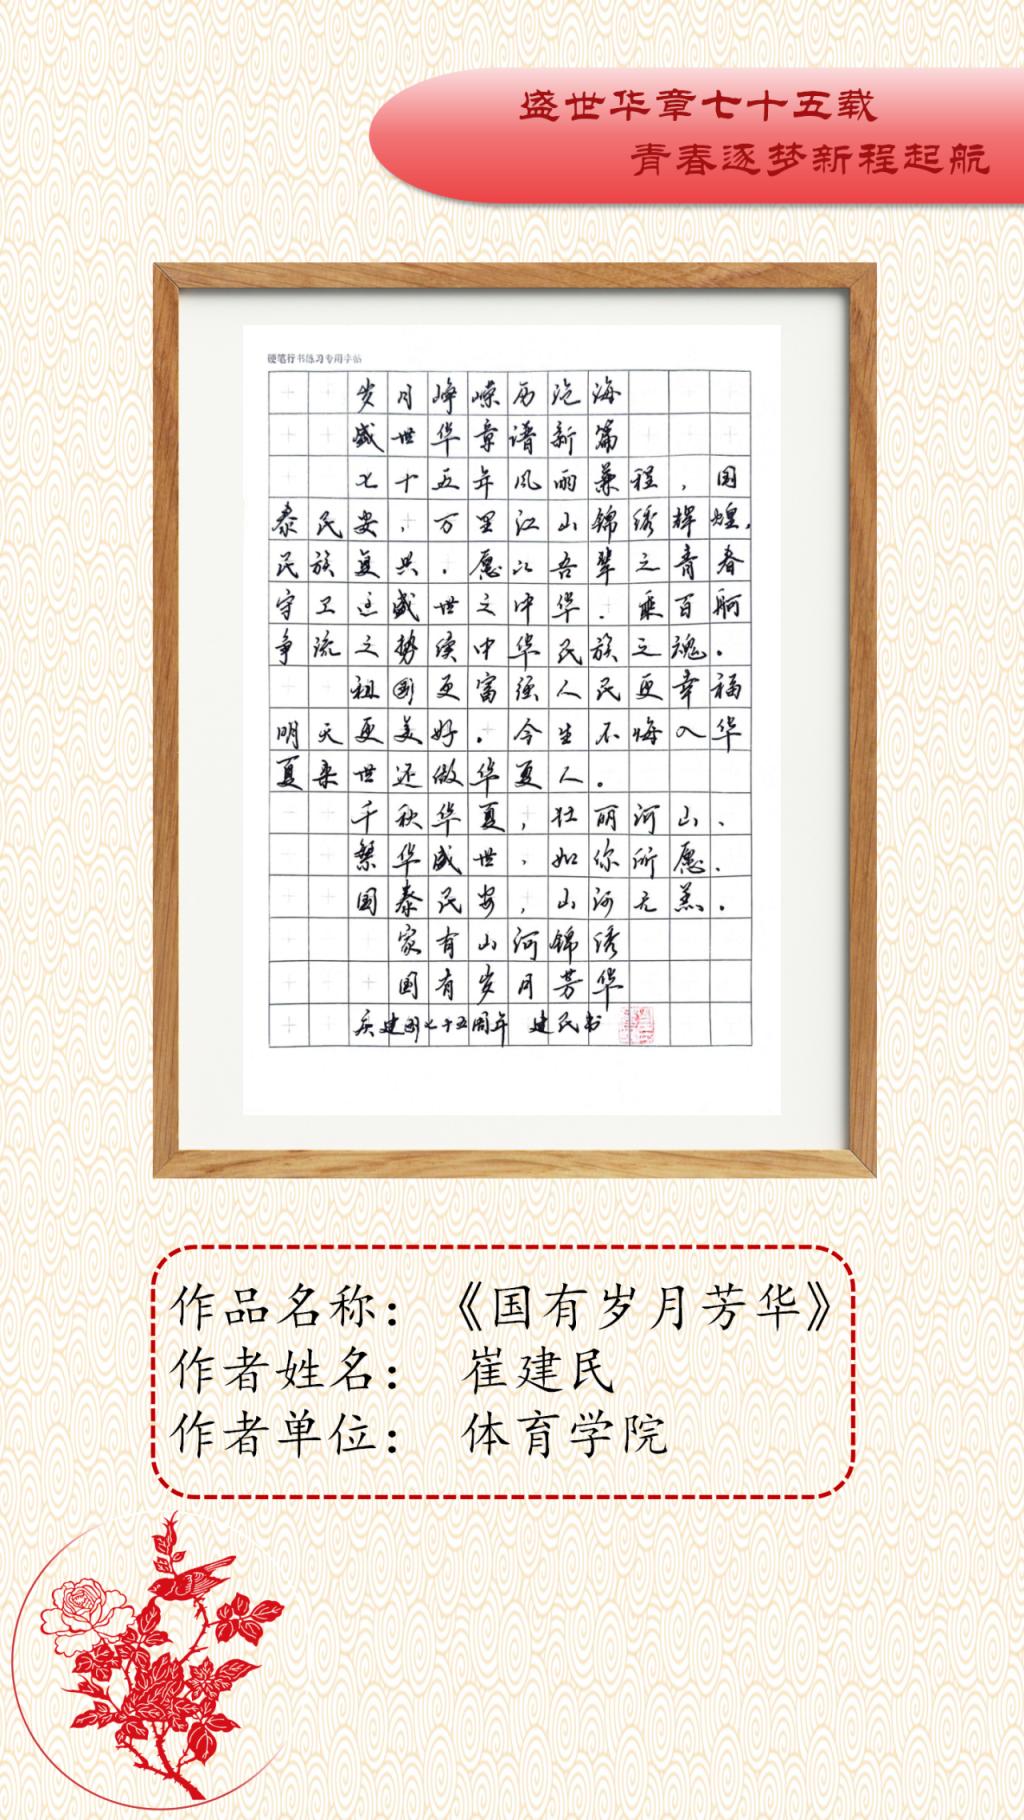 盛世华章七十五载
青春逐梦新程起航
硬笔行书练习专用字帖
岁月峥嵘历沧海
盛世华章谱新篇
七十五年风雨兼程，国
泰民安，万里江山锦绣辉煌，
民族复兴，愿以吾辈之青春
守卫这盛世之中华．乘百舸
争流之势续中华民族之魂．
祖国更富强人民更幸福
明天更美好．今生不悔入华
夏来世还做华夏人．
千秋华夏，壮丽河山、
繁华盛世，如你所愿．
国泰民安，山河无恙．
家有山河锦绣
国有岁月芳华
庆建国七十五周年 建民书
作品名称：《国有岁月芳华》
作者姓名： 崔建民
作者单位： 体育学院